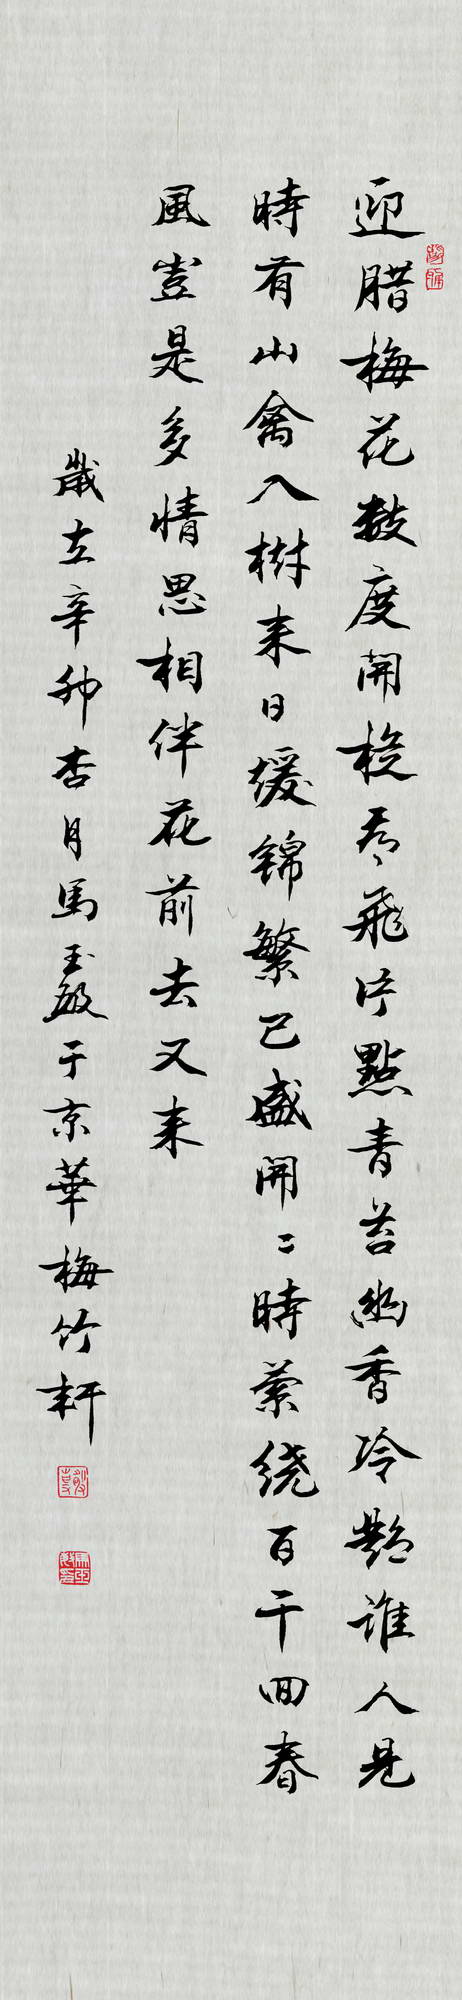 迎腊梅花数度開枝看飛片點青苔幽香冷艷誰人見
時有山禽入樹来日緩錦繁已盛開〻時縈绕百千回春
風豈是多情思相伴花前去又来
歲在辛卯杏月馬玉嚴于京華梅竹軒